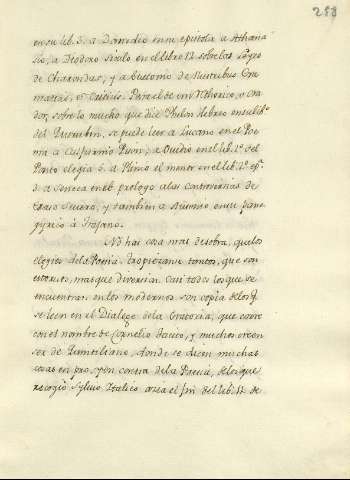 253
en su lib. 3. a Damedio en su epistola a Athana
sio, a Diodoro Siculo en el libro 12 sobre las Leyes
de Charondas, y a Suetonio de Illustribus Gra
maticis, et Para el de un Rhetorico, u Ora
dor, sobre lo mucho que dice Philon Hebreo en su lib.
del Querubin, se puede leer a Lucano en el Poe
ma a Calpurnio Pison; a Ovidio en el lib. 2º del
Ponto elegia 5. a Plinio el menor en el lib. 2º ep.
3. a Seneca en el prologo a las Controversias de
Casio Severo, y tambien a Ausonio en su pane
gyrico a Trajano.
No hai cosa mas de sobra, que los
elogios de la Poesia. Tropiezanse tantos, que son
estorvo, mas que diversion. Casi todos los que se
encuentran en los modernos son copia de los q.
se leen en el Dialogo de la Oratoria, que corre
con el nombre de Cornelio Tacito, y muchos creen
ser de Quintiliano, donde se dicen muchas
cosas en pro, y en contra de la Poesia, de los que
recogió Sylvio Italico acia el fin del lib. 11. de